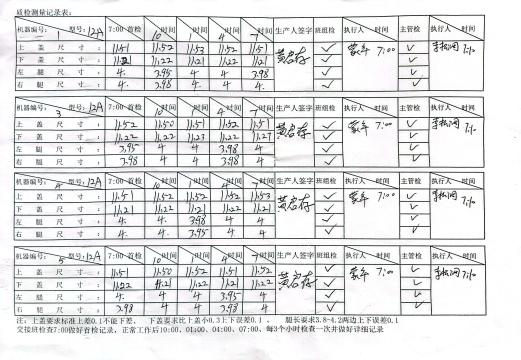 质检测量记录表:
机器编号: 1 型号: 12A 7:00 首检 10 时间 1 时间 4 时间 7 时间 生产人签字 班组检 执行人 时间 主管检 执行人 时间
上盖尺寸: 11.51 11.52 11.53 11.52 11.51 黄启存 ✓ 蒙年 7:00 ✓
下盖尺寸: 11.21 11.22 11.21 11.22 11.21 ✓ ✓
左腿尺寸: 4. 3.95 4 4 3.98 ✓ ✓
右腿尺寸: 4. 4 4 4 4 ✓ ✓
机器编号: 3 型号: 12A 7:00 首检 10 时间 1 时间 4 时间 7 时间 生产人签字 班组检 执行人 时间 主管检 执行人 时间
上盖尺寸: 11.52 11.50 11.51 11.52 11.51 黄启存 ✓ 蒙年 7:00 ✓
下盖尺寸: 11.22 11.22 11.23 11.22 11.27 ✓ ✓
左腿尺寸: 3.95 4 4 3.98 4 ✓ ✓
右腿尺寸: 3.98 4 4 3.98 4 ✓ ✓
机器编号: 4 型号: 12A 7:00 首检 10 时间 1 时间 4 时间 7 时间 生产人签字 班组检 执行人 时间 主管检 执行人 时间
上盖尺寸: 11.51 11.52 11.52 11.52 11.53 黄启存 ✓ 蒙年 7:00 ✓
下盖尺寸: 11.21 11.22 11.21 11.22 11.21 ✓ ✓
左腿尺寸: 4 4 3.98 4 4 ✓ ✓
右腿尺寸: 4 4 3.95 4 4 ✓ ✓
机器编号: 5 型号: 12A 7:00 首检 10 时间 1 时间 4 时间 7 时间 生产人签字 班组检 执行人 时间 主管检 执行人 时间
上盖尺寸: 11.51 11.50 11.52 11.51 11.52 黄启存 ✓ 蒙年 7:00 ✓
下盖尺寸: 11.22 11.21 11.22 11.21 11.22 ✓ ✓
左腿尺寸: 4 4 4 3.95 4 ✓ ✓
右腿尺寸: 3.98 4 4 3.98 4 ✓ ✓
注:上盖要求标准上差0.1不能下差, 下盖要求比上盖小0.3上下误差0.1, 腿长要求3.8-4.2两边上下误差0.1
交接班检查7:00做好首检记录,正常工作后10:00,01:00,04:00,07:00,每3个小时检查一次并做好详细记录